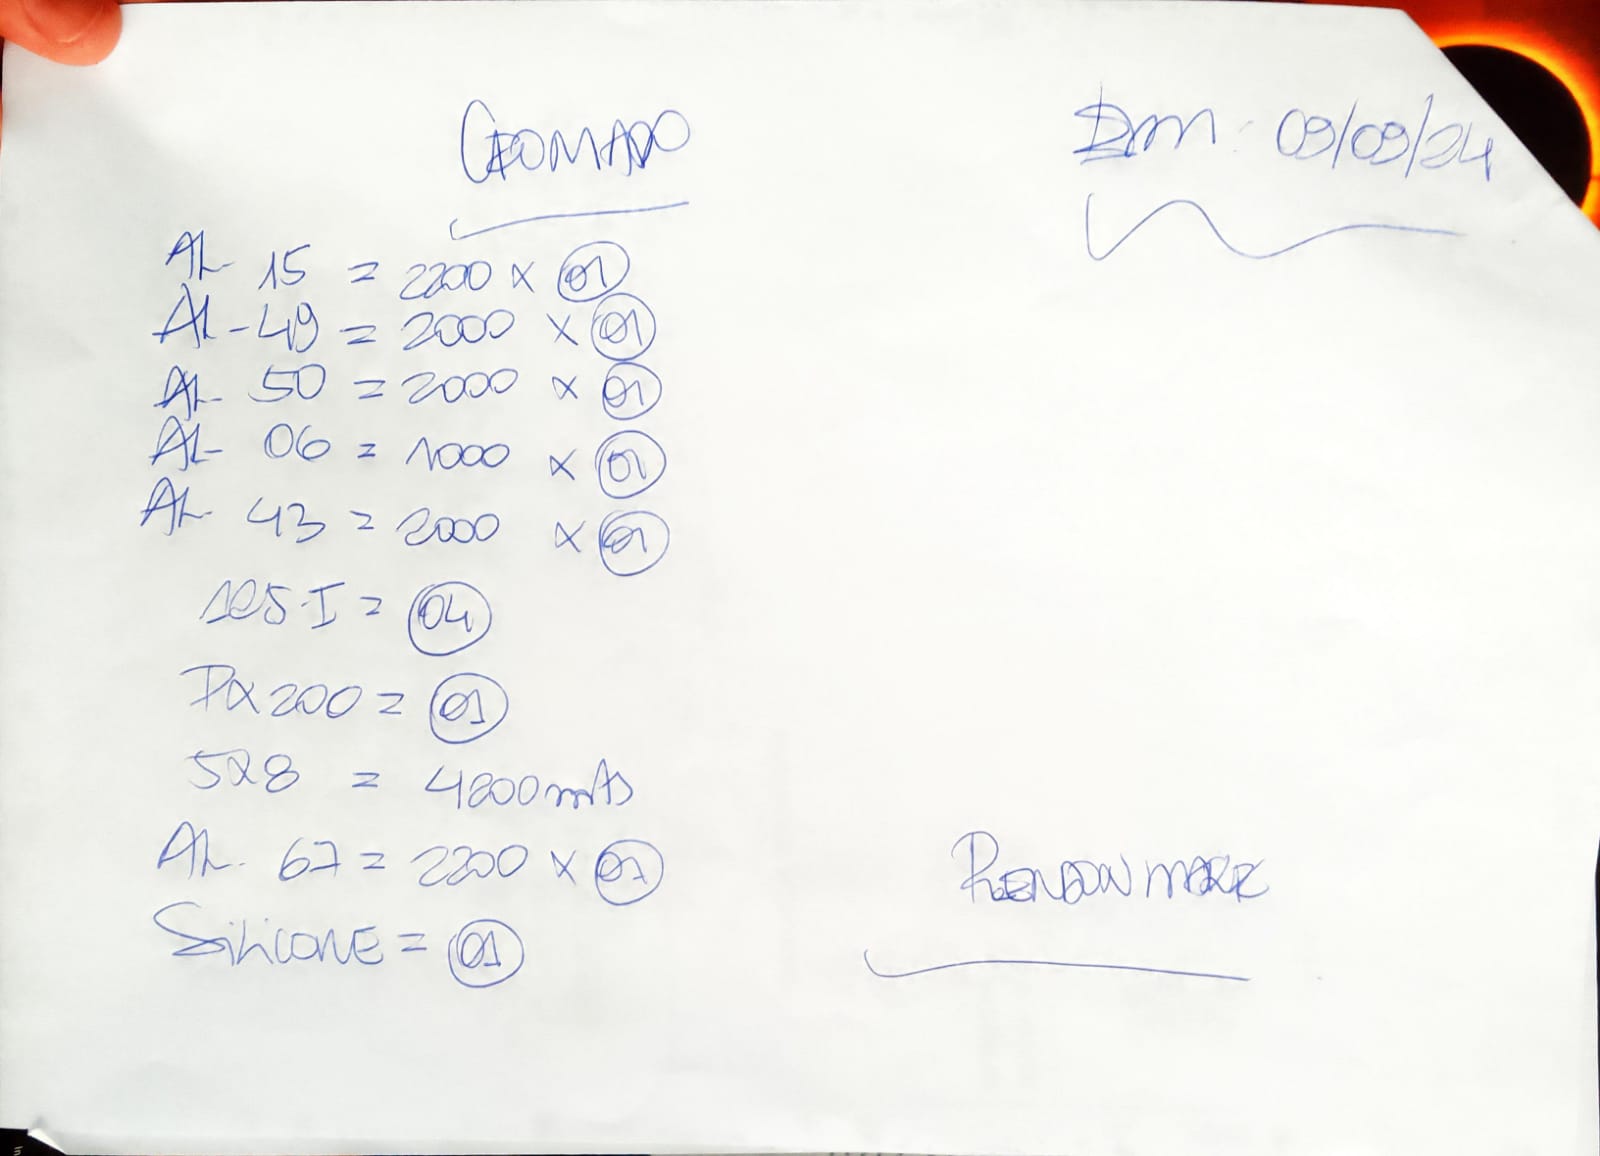 CROMADO
Em: 09/09/24
AL- 15 = 2200 x 01
AL - 49 = 2000 x 01
AL 50 = 2000 x 01
AL- 06 = 1000 x 01
AL- 43 = 2000 x 01
125-I = 04
PX 200 = 01
528 = 4200 mts
AL. 67 = 2200 x 01
Silicone = 01